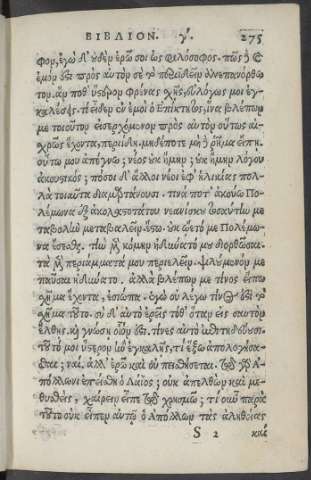 ΒΙΒΛΙΟΝ. γ. 275
φορ, ἐγὼ δ' οὐδὲν ἐρῶ σοι ὡς φιλόσοφος. πῶς
ἐμὸν πρὸς αὐτὸν σε
τον. ἂρ ποθ' ὕστερον φρένας σχῇς, εὐλόγως μοι ἐγ
καλέσεις. τί εἶδεν ἐν ἐμοὶ ὁ Ἐπίκτητος, ἵνα βλέπων
με τοιοῦτον εἰσερχόμενον πρὸς αὐτὸν οὕτως αἰ
χρῶς ἔχοντα, περιίδῃ. μηδέποτε μηδὲ ῥῆμα εἰπεῖν.
οὕτω μου ἀπέγνω; νέος οὐκ ἤμην; οὐκ ἤμην λόγου
ἀκουστικός; πόσοι δ' ἄλλοι νέοι ἐφ' ἡλικίας πολ
λὰ τοιαῦτα διαμαρτάνουσι. τινά ποτ' ἀκούω Πο
λέμωνα ἐξ ἀκολαστοτάτου νεανίσκου ὡσαύτως με
ταβολὴν μεταβαλεῖν. ἔστω. οὐκ ᾤετό με Πολέμω
να ἔσεσθαι. τὴν μὲν κόμην ἠδύνατό μου διορθῶσαι.
τὰ μὲν περιάμματά μου περιελεῖν. ψιλούμενόν με
παῦσαι ἠδύνατο. ἀλλὰ βλέπων με τίνος εἴπω
σχῆμα ἔχοντα, ἐσιώπα. ἐγὼ οὐ λέγω τίνος ἐστὶ τὸ
σχῆμα τοῦτο. σὺ δ' αὐτὸ ἐρεῖς τόθ' ὅταν εἰς σαυτὸν
ἔλθῃς. καὶ γνώσῃ οἷόν ἐστι. τίνες αὐτὸ ἐπιτηδεύουσι.
τοῦτό μοι ὕστερον ἂν ἐγκαλῇς, τί ἕξω ἀπολογήσα
σθαι; ναί. ἀλλ' ἐρῶ καὶ οὐ πεισθήσεται. τῷ γὰρ Ἀ
πόλλωνι ἐπείσθη ὁ Λάϊος; οὐκ ἀπελθὼν καὶ με
θυσθεὶς, χαίρειν εἶπε τῷ χρησμῷ; τί οὖν παρὰ
τοῦτο οὐκ εἶπεν αὐτῷ ὁ Ἀπόλλων τὰς ἀληθείας
S 2 καί